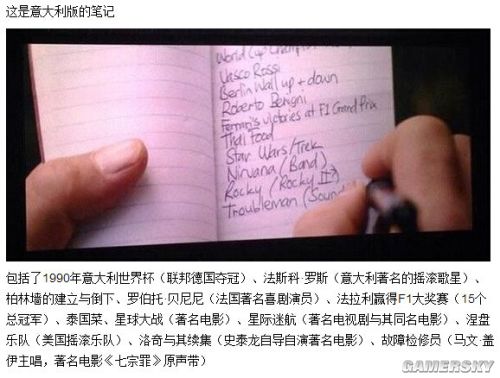 这是意大利版的笔记
World Cup Champio
Vasco Rossi
Berlin Wall up + down
Roberto Benigni
Ferrari's victories at F1 Grand Prix
Thai Food
Star Wars/Trek
Nirvana (Band)
Rocky (Rocky II?)
Troubleman (Soun
包括了1990年意大利世界杯（联邦德国夺冠）、法斯科·罗斯（意大利著名的摇滚歌星）、
柏林墙的建立与倒下、罗伯托·贝尼尼（法国著名喜剧演员）、法拉利赢得F1大奖赛（15个
总冠军）、泰国菜、星球大战（著名电影）、星际迷航（著名电视剧与其同名电影）、涅盘
乐队（美国摇滚乐队）、洛奇与其续集（史泰龙自导自演著名电影）、故障检修员（马文·盖
伊主唱，著名电影《七宗罪》原声带）
GAMERSKY